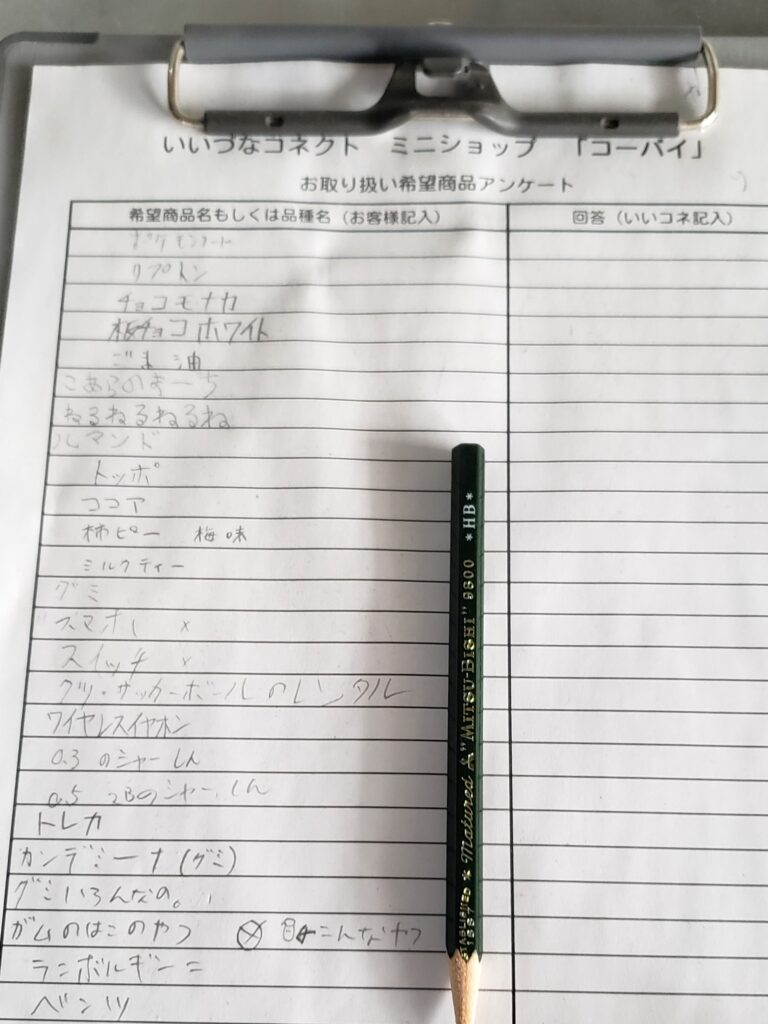 いいづなコネクト ミニショップ 「コーバイ」
お取り扱い希望商品アンケート
希望商品名もしくは品種名(お客様記入) 回答(いいコネ記入)
リプトン
チョコモナカ
板チョコホワイト
ごま油
こあらのまーち
ねるねるねるね
ルマンド
トッポ
ココア
柿ピー 梅味
ミルクティー
グミ
スマホ x
スイッチ x
クツ・サッカーボールのレンタル
ワイヤレスイヤホン
0.3 のシャーしん
0.5 2Bのシャーしん
トレカ
カンデミーナ(グミ)
グミいろんなの。
ガムのはこのやつ こんなやつ
ランボルギーニ
ベンツ
ESTABLISHED 1887 * Matured by "MITSU-BISHI" 9800 *HB*